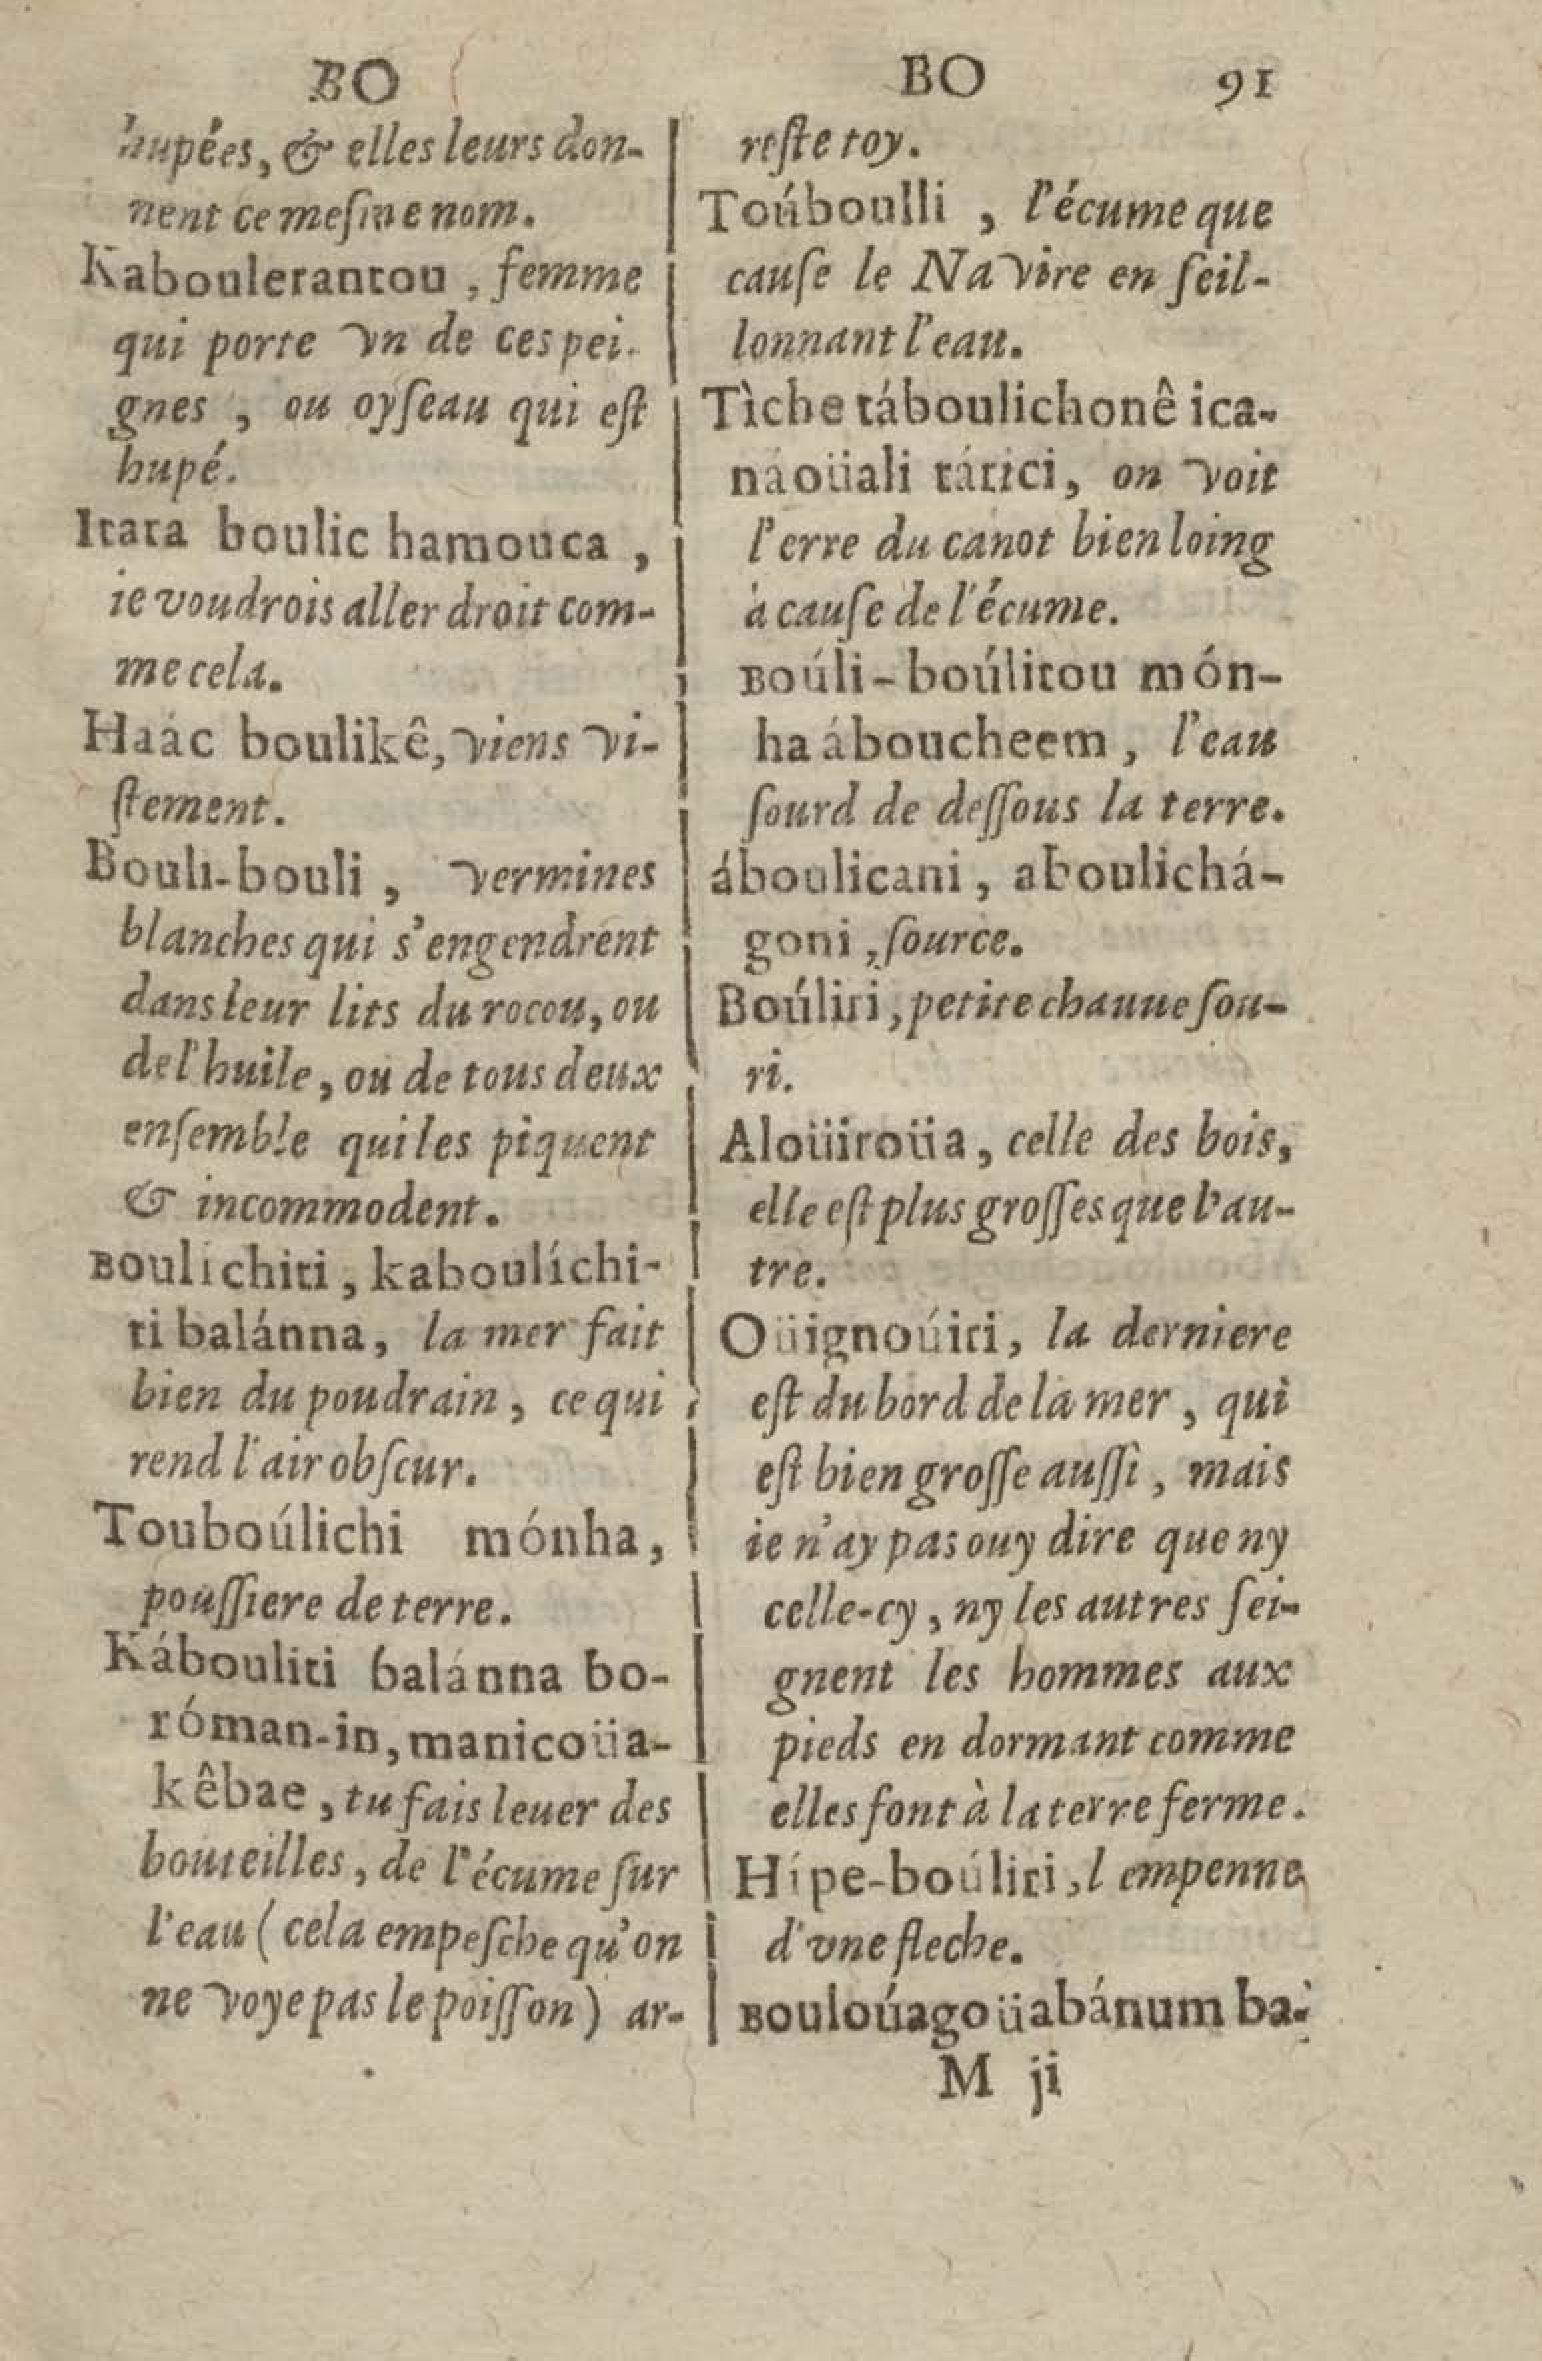 BO
hupées, & elles leurs don-
nent ce meſme nom.
Kaboulerantou, femme
qui porte vn de ces pei-
gnes, ou oyſeau qui eſt
hupé.
Itata boulic hamouca,
ie voudrois aller droit com-
me cela.
Haác boulikê, viens vi-
ſtement.
Bouli-bouli, vermines
blanches qui s'engendrent
dans leur lits du rocou, ou
de l'huile, ou de tous deux
enſemble qui les piquent
& incommodent.
Boulichiti, kaboulíchi-
ti balánna, la mer fait
bien du poudrain, ce qui
rend l'air obſcur.
Touboúlichi mónha,
pouſſiere de terre.
Kábouliti balánna bo-
róman-in, manicoüa-
kêbae, tu fais leuer des
bouteilles, de l'écume ſur
l'eau (cela empeſche qu'on
ne voye pas le poiſſon) ar-
BO 91
reſte toy.
Toúboulli, l'écume que
cauſe le Navire en ſeil-
lonnant l'eau.
Tìche táboulichonê ica-
náoüali tátici, on voit
l'erre du canot bien loing
à cauſe de l'écume.
Boúli-boúlitou món-
ha áboucheem, l'eau
ſourd de deſſous la terre.
áboulicani, aboulichá-
goni, ſource.
Boúliri, petite chauue ſou-
ri.
Aloüiroüa, celle des bois,
elle eſt plus groſſes que l'au-
tre.
Oüignoúiti, la derniere
eſt du bord de la mer, qui
eſt bien groſſe auſſi, mais
ie n'ay pas ouy dire que ny
celle-cy, ny les autres ſei-
gnent les hommes aux
pieds en dormant comme
elles font à la terre ferme.
Hípe-boúliri, l empenne
d'vne fleche.
Bouloúagoüabánum ba-
M ji